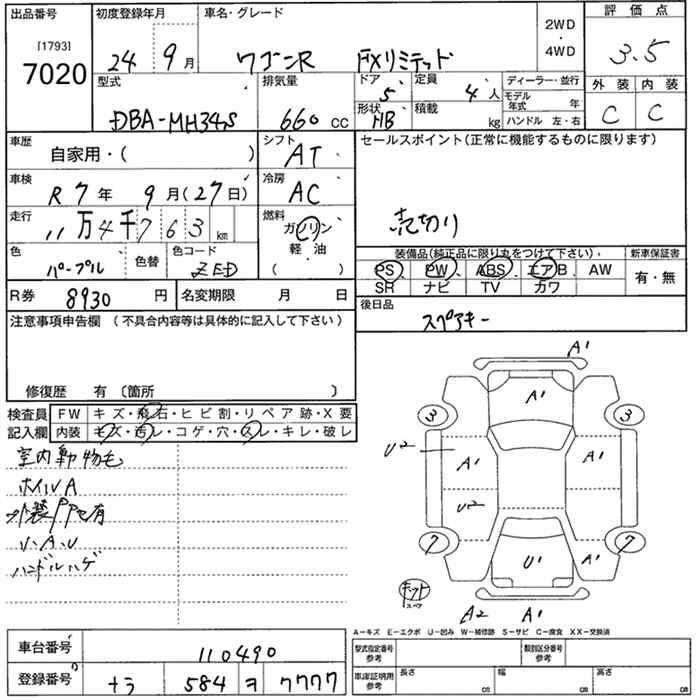 出品番号
[1793]
7020
初度登録年月
24年9月
車名・グレード
ワゴンR FXリミテッド
2WD
・
4WD
評価点
3.5
外装 内装
C C
型式
DBA-MH34S
排気量
660 CC
ドア
5
形状
HB
定員
4人
積載
kg
ディーラー・並行
モデル年式 年
ハンドル 左・右
車歴
自家用・( )
シフト
AT
セールスポイント(正常に機能するものに限ります)
売切り
車検
R7年9月(27日)
冷房
AC
走行
11万4千763km
燃料
ガソリン
軽・油
・
( )
色
パープル
色替
色コード
ZED
装備品(純正品に限り丸をつけて下さい)
PS PW ABS エアB AW
SR ナビ TV カワ
新車保証書
有・無
R券 8930円
名変期限 月 日
後日品
スペアキー
注意事項申告欄(不具合内容等は具体的に記入して下さい)
修復歴 有〔箇所 〕
検査員記入欄
FW キズ・飛石・ヒビ割・リペア跡・X要
内装 キズ・汚レ・コゲ・穴・スレ・キレ・破レ
室内動物毛
ホイルA
U・A・U
ハンドルハゲ
A1
A1
3 3
U2
A1 A1
U2
7 7
U1 A1
キット
スペア
A2 A1
A-キズ E-エクボ U-凹み W-補修跡 S-サビ C-腐食 XX-交換済
車台番号 110490
登録番号 ナラ 584 ヲ 7777
型式指定番号 参考
類別区分番号 参考
車庫証明用 参考
長さ cm
幅 cm
高さ cm